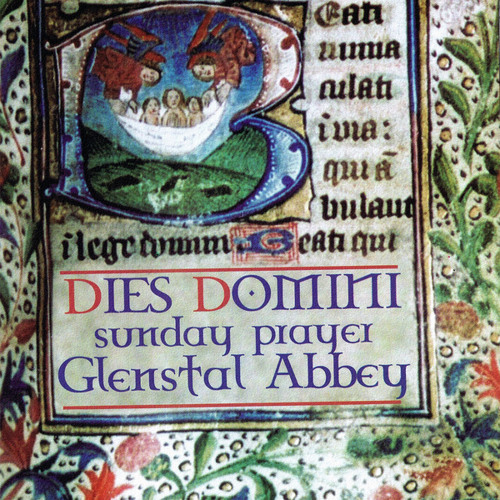 Eati
inma
culati
i via:
qui ā
bulant
i lege domini Beati qui
DIES DOMINI
sunday prayer
Glenstal Abbey